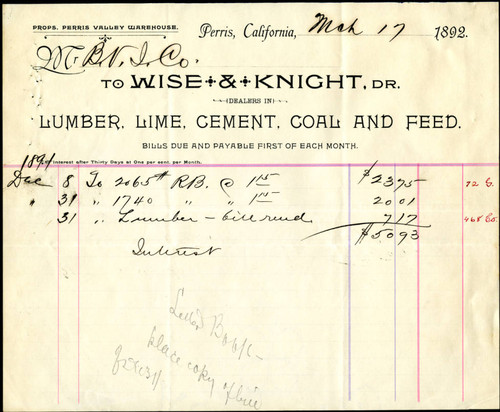 PROPS. PERRIS VALLEY WAREHOUSE.
Perris, California, Mch 17 1892.
Mr B.V.I. Co.
TO WISE & KNIGHT, DR.
(DEALERS IN)
LUMBER, LIME, CEMENT, COAL AND FEED.
BILLS DUE AND PAYABLE FIRST OF EACH MONTH.
1891 Interest after Thirty Days at One per cent. per Month.
Dec 8 To 2065# R.B. @ 1 15 $ 23 75 72
" 31 " 1740 " " 1 15 20 01
31 " Lumber - bill rend 7 17 468
$ 50 93
Interest
Letter Book
place copy of bill